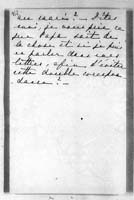 au mari? — Dites
moi, je vous prie ce
que Papa sait de
la chose et si je puis
en parler dans mes
lettres, afin d'éviter
cette double correspon-
dance?